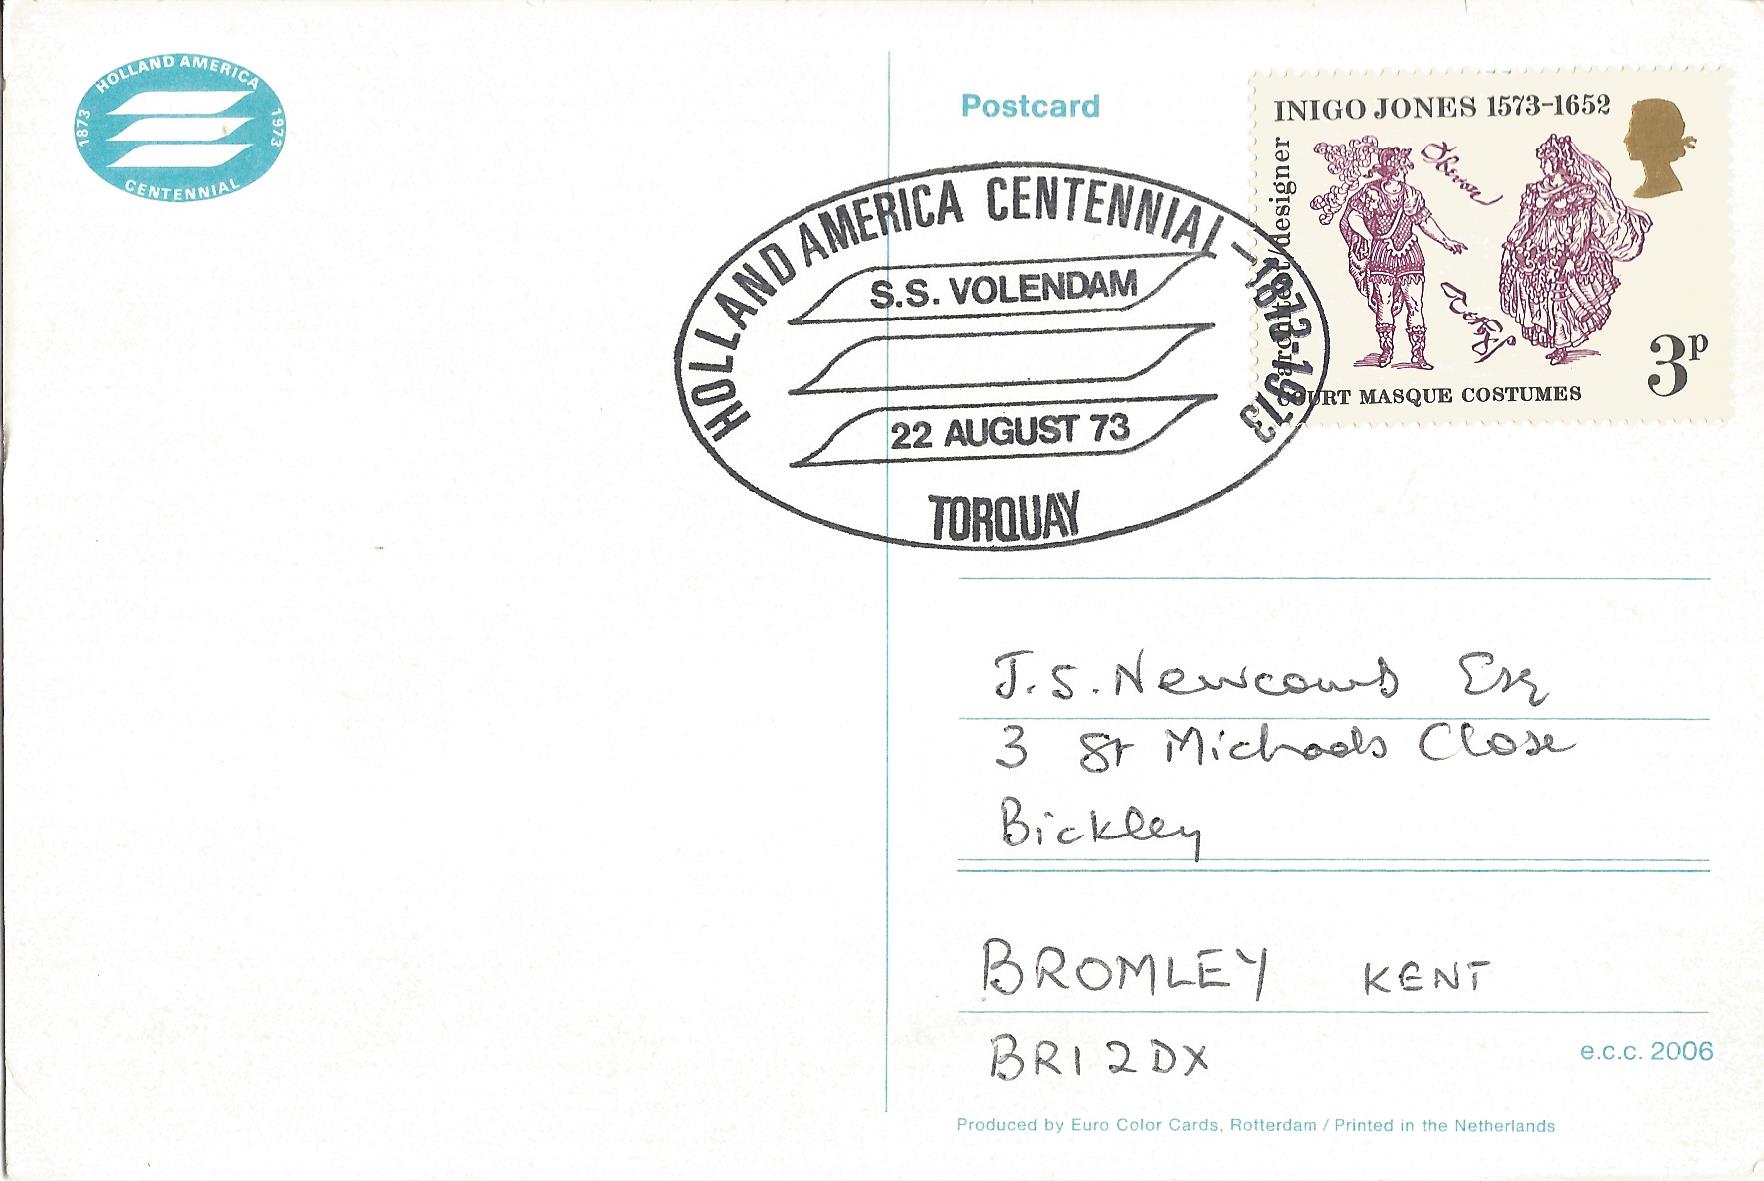 HOLLAND AMERICA
1873 1973
CENTENNIAL
Postcard
INIGO JONES 1573-1652
architect/designer
Oberon
3p
COURT MASQUE COSTUMES
HOLLAND AMERICA CENTENNIAL - 1873-1973
S.S. VOLENDAM
22 AUGUST 73
TORQUAY
J.S. Newcomb Esq
3 St Michaels Close
Bickley
BROMLEY KENT
BR1 2DX
e.c.c. 2006
Produced by Euro Color Cards, Rotterdam / Printed in the Netherlands